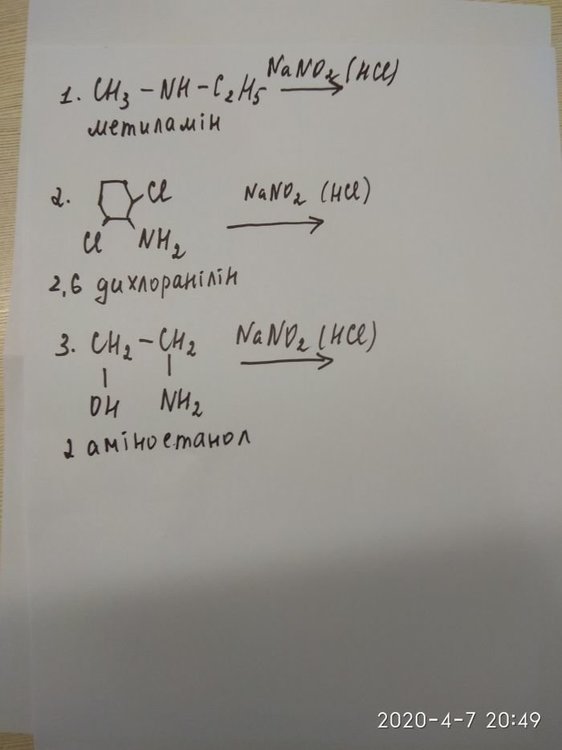 1. CH₃ – NH – C₂H₅ NaNO₂ (HCl) →
метиламін
2. Cl NaNO₂ (HCl) →
Cl NH₂
2,6 дихлоранілін
3. CH₂ – CH₂ NaNO₂ (HCl) →
OH NH₂
2 аміноетанол
2020-4-7 20:49